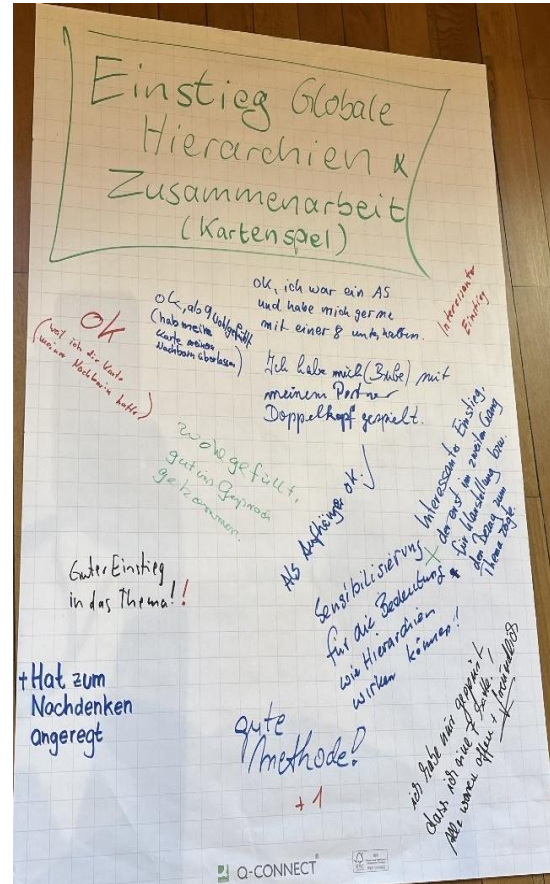 Einstieg Globale
Hierarchien &
Zusammenarbeit
(Kartenspiel)
OK
(weil ich die Karte
meiner Nachbarin hatte)
ok, als 9 wohlgefühlt
(hab meine
Karte meinem
Nachbarn überlassen)
ok, ich war ein AS
und habe mich gerne
mit einer 8 unterhalten.
Interessanter
Einstieg
Ich habe mich (Bube) mit
meinem Partner
Doppelkopf gespielt.
wohlgefühlt,
gut ins Gespräch
gekommen.
Als Anfänger ok.
Interessanter Einstieg,
der erst im zweiten Gang
für Klarstellung bzw.
den Bezug zum
Thema sorgte.
Sensibilisierung
für die Bedeutung
wie Hierarchien
wirken können!!
Guter Einstieg
in das Thema!!
+ Hat zum
Nachdenken
angeregt
gute
Methode!
+1
ich habe nur gespürt
dass ich eine 7 hatte!
Alle waren offen +
Q-CONNECT